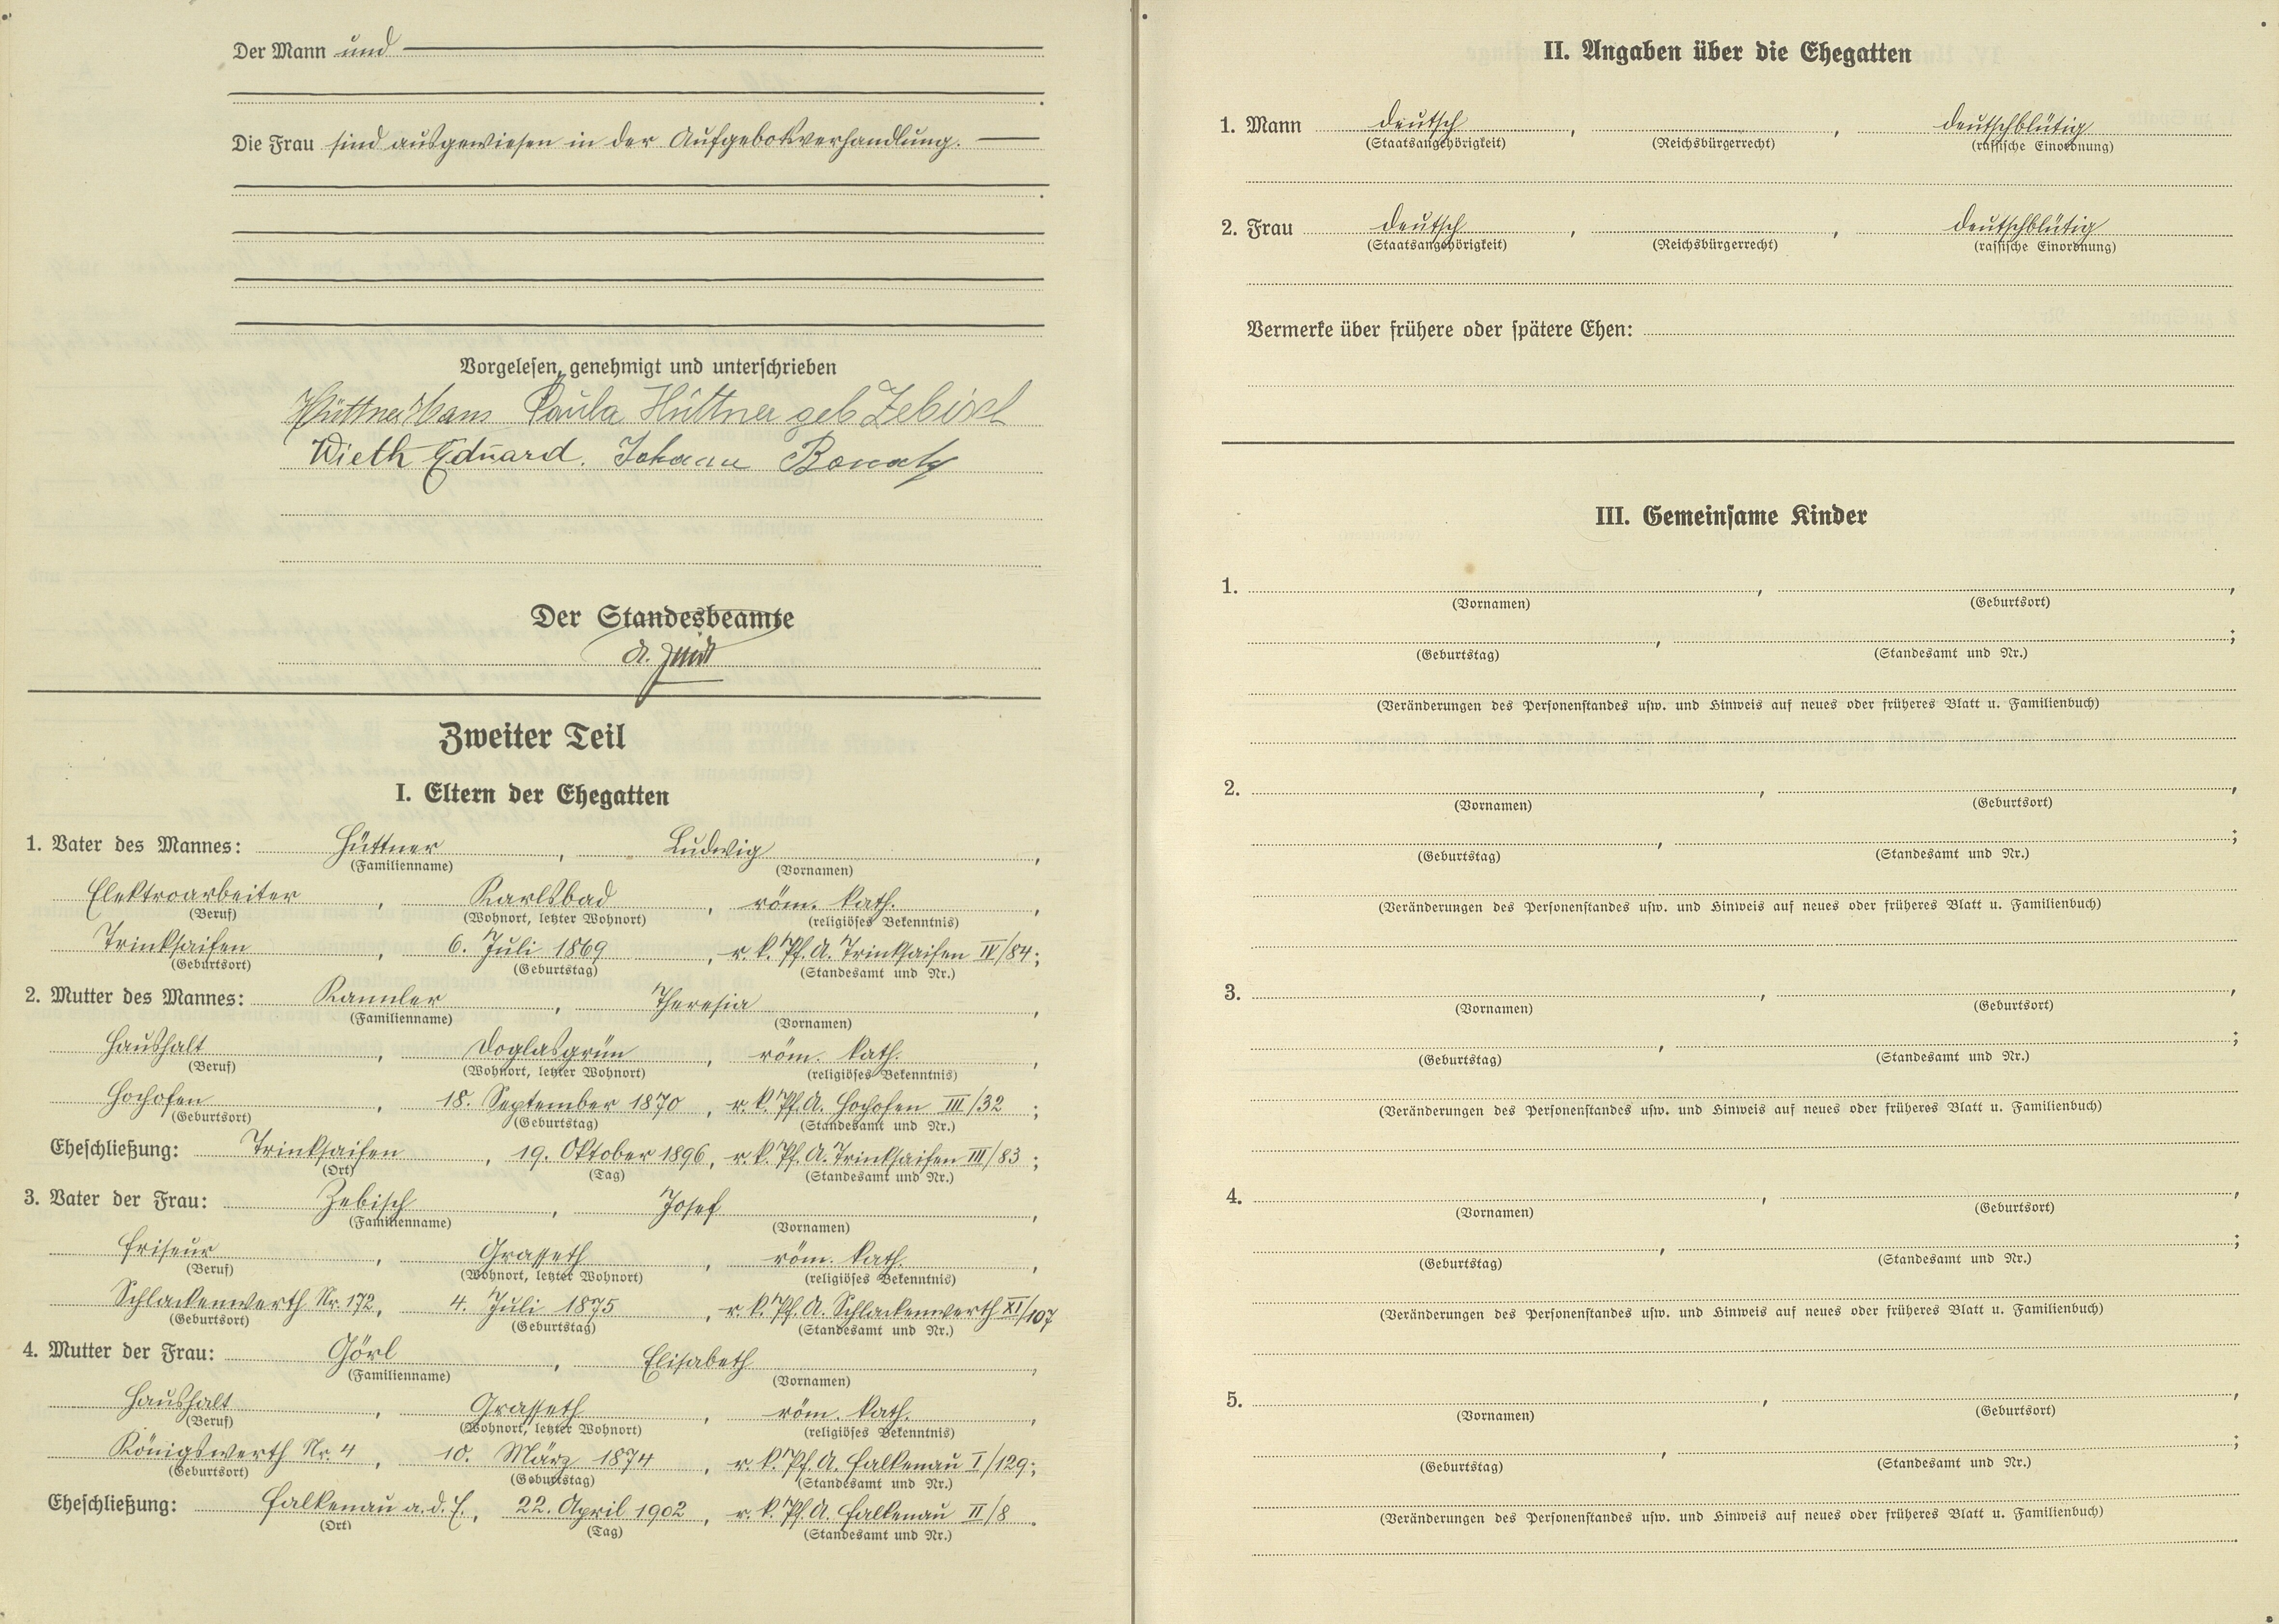 Der Mann und
Die Frau sind ausgewiesen in der Aufgebotsverhandlung.
Vorgelesen, genehmigt und unterschrieben
Hüttner Hans Paula Hüttner geb Zebisch
Wieth Eduard. Johann
Der Standesbeamte
Zweiter Teil
I. Eltern der Ehegatten
1. Vater des Mannes: Hüttner, Ludwig,
(Familienname) (Vornamen)
Elektroarbeiter, Karlsbad, röm. kath.,
(Beruf) (Wohnort, letzter Wohnort) (religiöses Bekenntnis)
Trinksaifen, 6. Juli 1869, r. k. Pf. A. Trinksaifen IV/84;
(Geburtsort) (Geburtstag) (Standesamt und Nr.)
2. Mutter des Mannes: Kannler, Theresia,
(Familienname) (Vornamen)
Haushalt, Doglasgrün, röm. kath.,
(Beruf) (Wohnort, letzter Wohnort) (religiöses Bekenntnis)
Hochofen, 18. September 1870, r. k. Pf. A. Hochofen III/32;
(Geburtsort) (Geburtstag) (Standesamt und Nr.)
Eheschließung: Trinksaifen, 19. Oktober 1896, r. k. Pf. A. Trinksaifen III/83;
(Ort) (Tag) (Standesamt und Nr.)
3. Vater der Frau: Zebisch, Josef,
(Familienname) (Vornamen)
Friseur, Grasseth, röm. kath.,
(Beruf) (Wohnort, letzter Wohnort) (religiöses Bekenntnis)
Schlackenwerth Nr. 172, 4. Juli 1875, r. k. Pf. A. Schlackenwerth XI/107
(Geburtsort) (Geburtstag) (Standesamt und Nr.)
4. Mutter der Frau: Görl, Elisabeth,
(Familienname) (Vornamen)
Haushalt, Grasseth, röm. kath.,
(Beruf) (Wohnort, letzter Wohnort) (religiöses Bekenntnis)
Königswerth Nr. 4, 10. März 1874, r. k. Pf. A. Falkenau I/129;
(Geburtsort) (Geburtstag) (Standesamt und Nr.)
Eheschließung: Falkenau a. d. E., 22. April 1902, r. k. Pf. A. Falkenau II/8.
(Ort) (Tag) (Standesamt und Nr.)
II. Angaben über die Ehegatten
1. Mann deutsch, , deutschblütig
(Staatsangehörigkeit) (Reichsbürgerrecht) (rassische Einordnung)
2. Frau deutsch, , deutschblütig
(Staatsangehörigkeit) (Reichsbürgerrecht) (rassische Einordnung)
Vermerke über frühere oder spätere Ehen:
III. Gemeinsame Kinder
1. , ,
(Vornamen) (Geburtsort)
, ;
(Geburtstag) (Standesamt und Nr.)
(Veränderungen des Personenstandes usw. und Hinweis auf neues oder früheres Blatt u. Familienbuch)
2. , ,
(Vornamen) (Geburtsort)
, ;
(Geburtstag) (Standesamt und Nr.)
(Veränderungen des Personenstandes usw. und Hinweis auf neues oder früheres Blatt u. Familienbuch)
3. , ,
(Vornamen) (Geburtsort)
, ;
(Geburtstag) (Standesamt und Nr.)
(Veränderungen des Personenstandes usw. und Hinweis auf neues oder früheres Blatt u. Familienbuch)
4. , ,
(Vornamen) (Geburtsort)
, ;
(Geburtstag) (Standesamt und Nr.)
(Veränderungen des Personenstandes usw. und Hinweis auf neues oder früheres Blatt u. Familienbuch)
5. , ,
(Vornamen) (Geburtsort)
, ;
(Geburtstag) (Standesamt und Nr.)
(Veränderungen des Personenstandes usw. und Hinweis auf neues oder früheres Blatt u. Familienbuch)